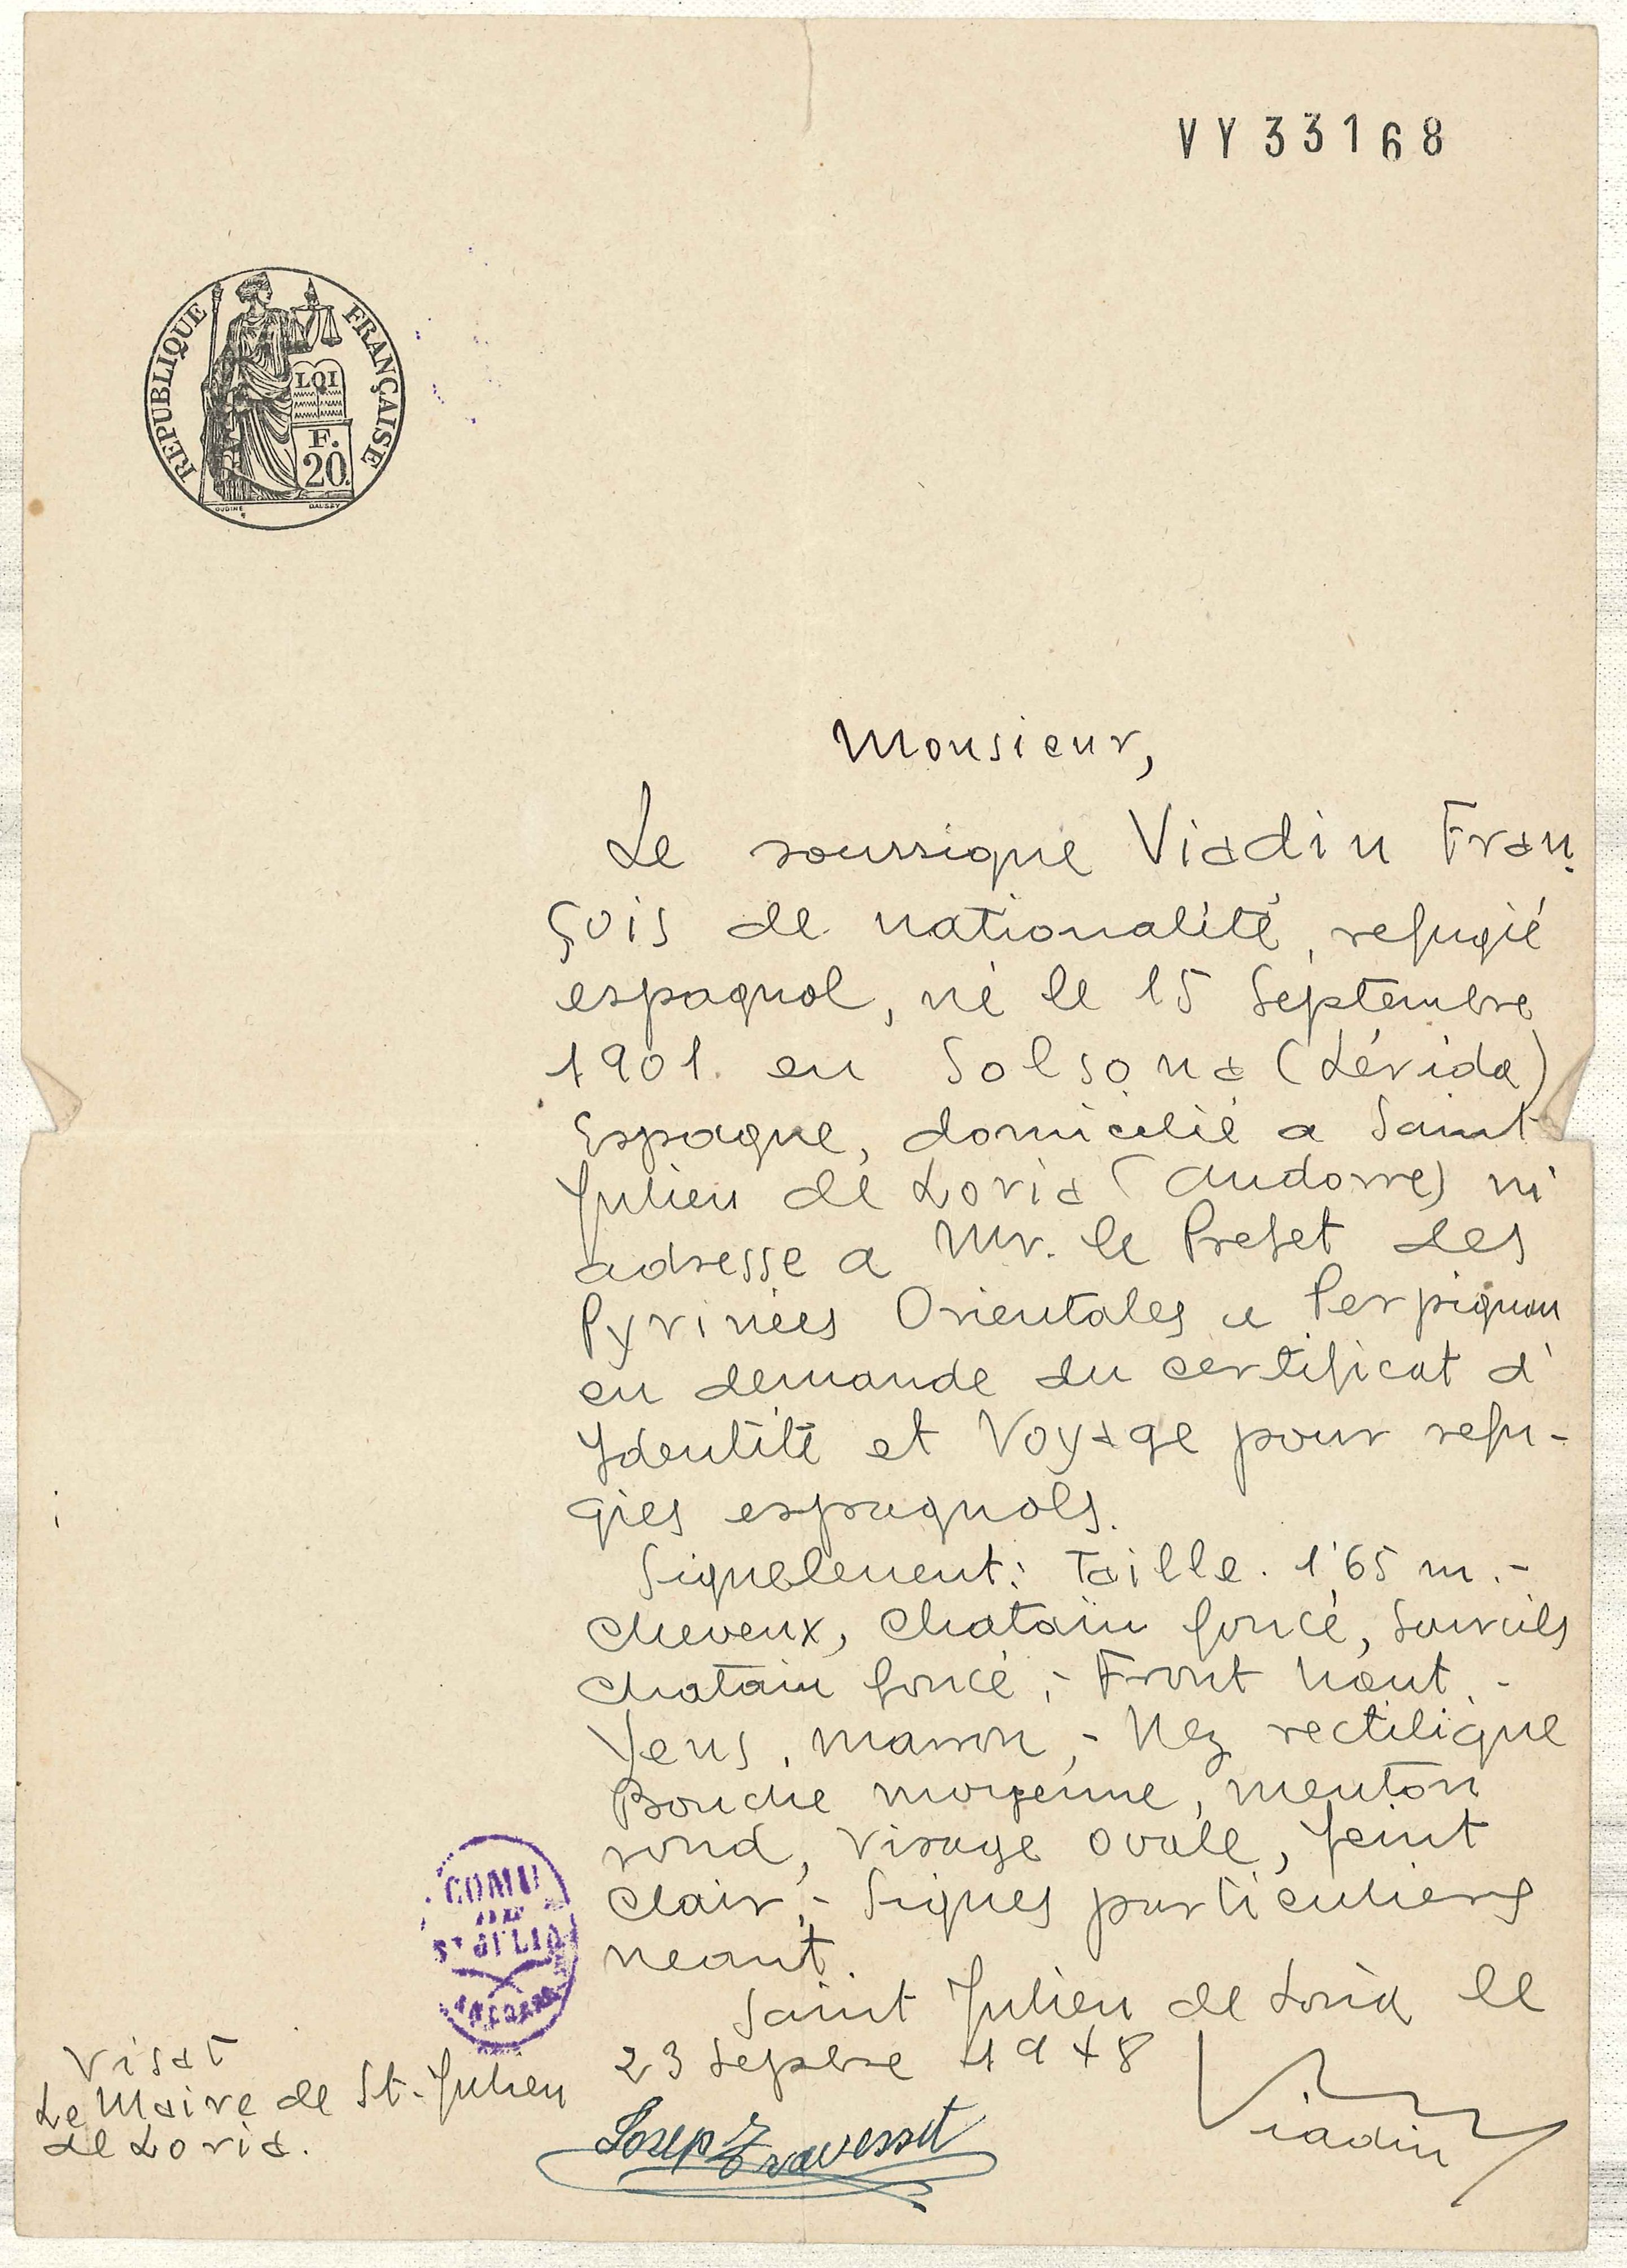 VY 33168
REPUBLIQUE FRANÇAISE
LOI
F.
20.
OUDINÉ
Monsieur,
Le soussigne Viadiu Fran-
çois de nationalité, refugié
espagnol, né le 15 Septembre
1901. en Solsona (Lérida)
Espagne, domicilié a Saint
Julien de Loria (Andorre) m'
adresse a Mr. le Prefet des
Pyrinées Orientales a Perpignan
en demande du certificat d'
Identité et Voyage pour refu-
gies espagnols.
Signelement: Taille. 1'65 m.-
Cheveux, Chatain foncé, Sourcils
chatain foncé,- Front haut.-
Yeus, marron,- Nez rectiligne
Bouche moyenne, menton
rond, visage ovale, Teint
clair,- Signes particuliers
neant.
Saint Julien de Loria le
23 Sepbre 1948
Viadiu
COMU
DE
ST JULIA
ANDORRA
Visat
Le Maire de St-Julien
de Loria.
Josep Travesset